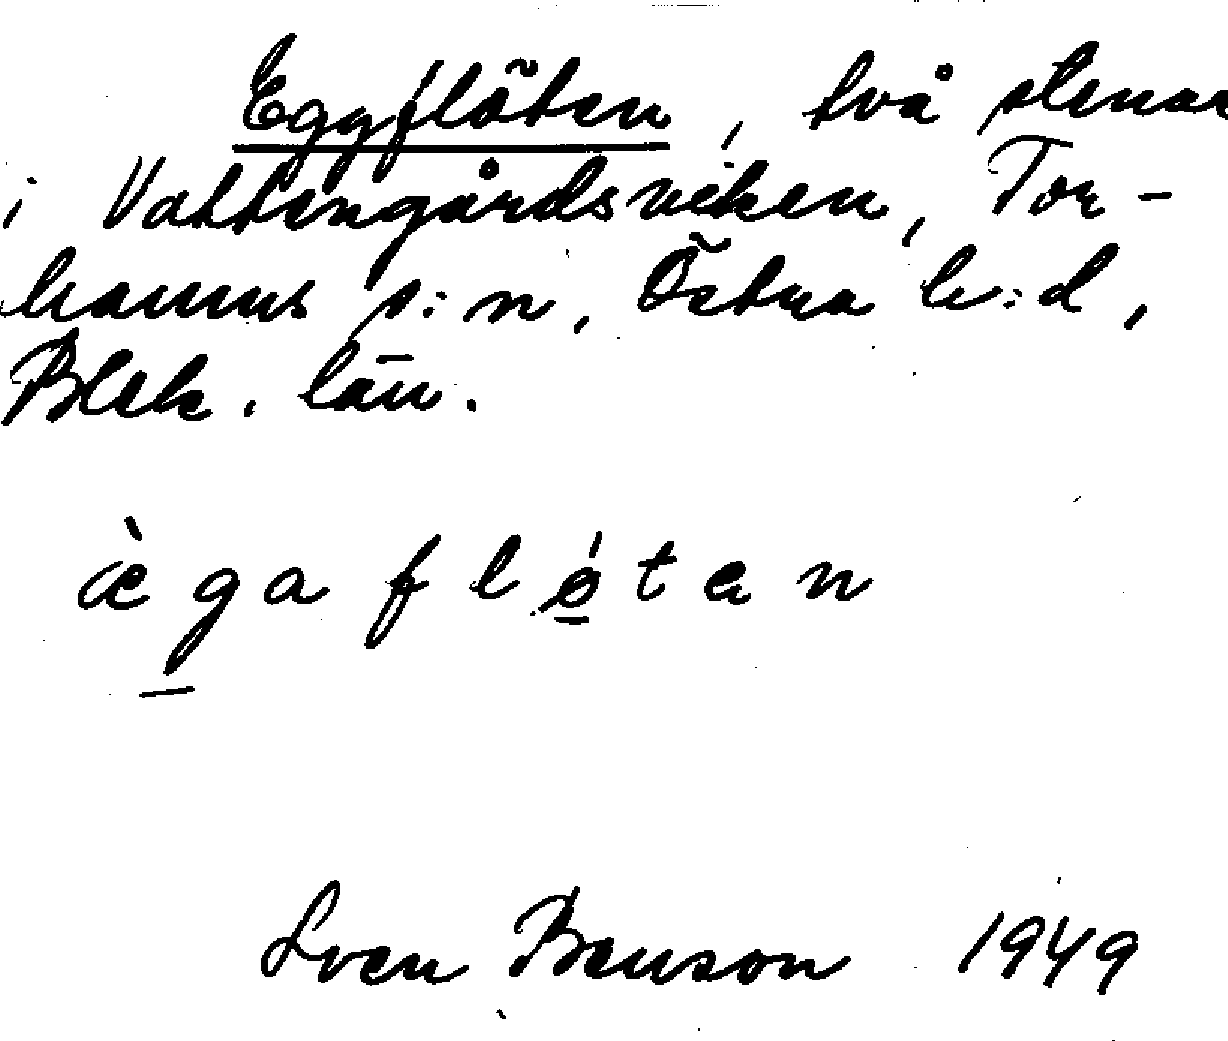 Eggflöten, två stenar
i Vattengårdsviken, Tor-
hamns s:n, Östra h:d,
Blek. län.
æ̀gaflǿtan
Sven Benson 1949